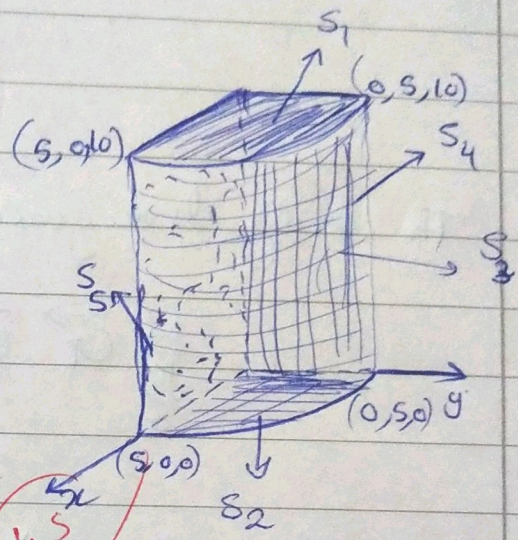 S1
(0, 5, 10)
(5, 0,10)
S4
S3
S5
(0,5,0) y
(5,0,0)
x
S2